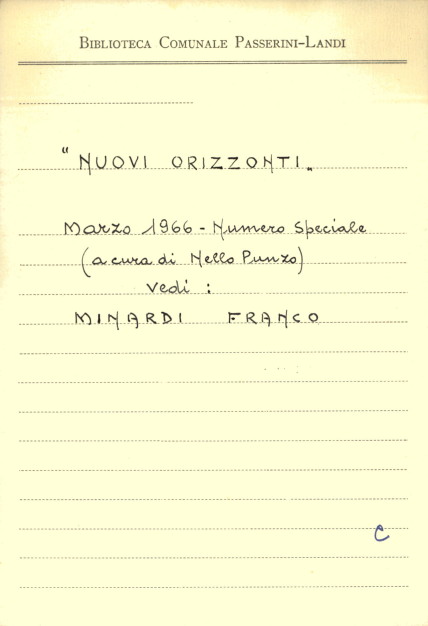 BIBLIOTECA COMUNALE PASSERINI-LANDI
“NUOVI ORIZZONTI„
Marzo 1966 - Numero Speciale
(a cura di Nello Punzo)
Vedi :
MINARDI FRANCO
C